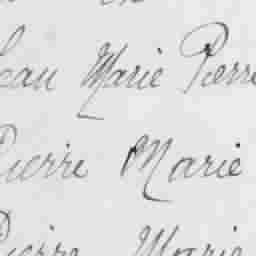 Jean Marie Pierre
Pierre Marie
Pierre Marie